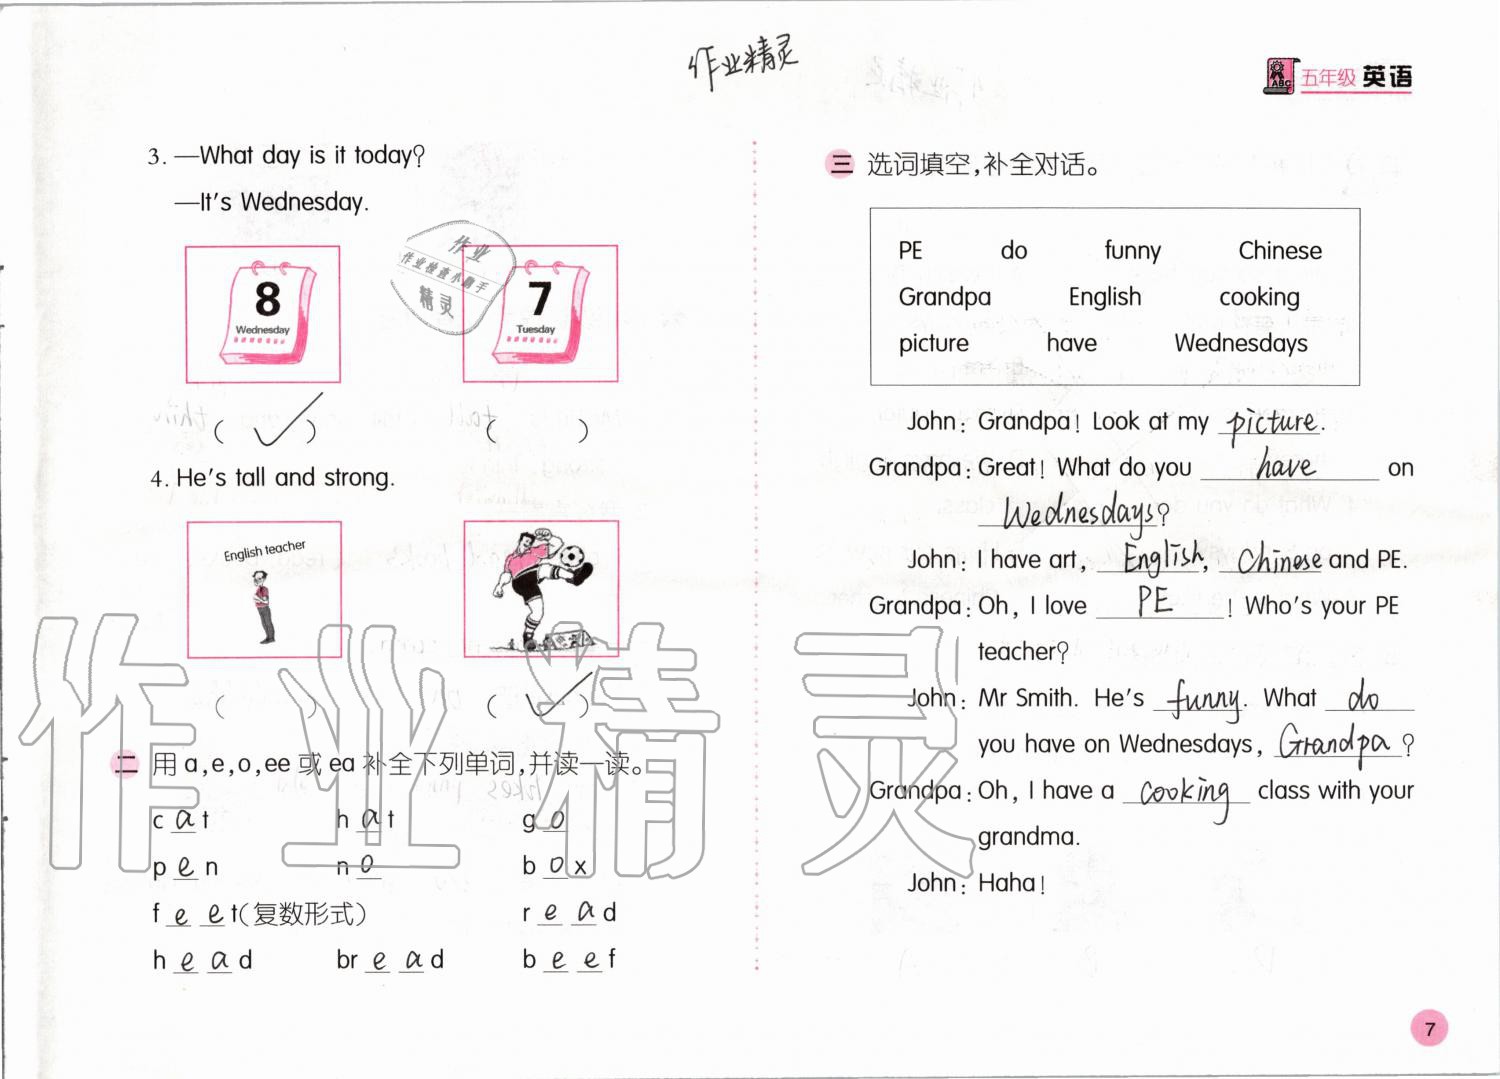 作业精灵
五年级 英语
3. —What day is it today?
—It's Wednesday.
作业
作业检查小助手
精灵
8
Wednesday
7
Tuesday
( ✓ ) ( )
4. He's tall and strong.
English teacher
( ) ( ✓ )
二 用 a,e,o,ee 或 ea 补全下列单词,并读一读。
c a t h a t g o
p e n n o b o x
f e e t(复数形式) r e a d
h e a d br e a d b e e f
三 选词填空,补全对话。
PE do funny Chinese
Grandpa English cooking
picture have Wednesdays
John: Grandpa! Look at my picture.
Grandpa: Great! What do you have on
Wednesdays?
John: I have art, English, Chinese and PE.
Grandpa: Oh, I love PE ! Who's your PE
teacher?
John: Mr Smith. He's funny. What do
you have on Wednesdays, Grandpa ?
Grandpa: Oh, I have a cooking class with your
grandma.
John: Haha!
作业精灵
7